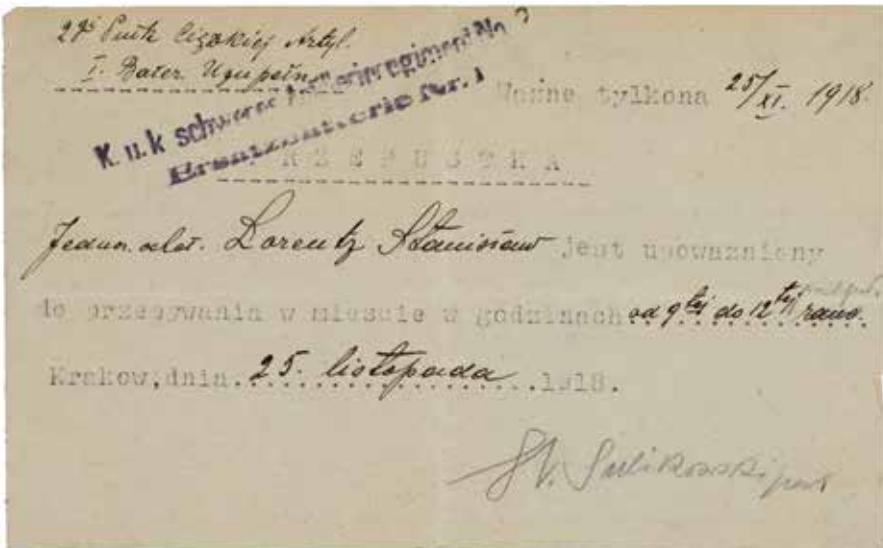 Pułk Ciężkiej Artyl.
I. Bater. Uzupełn.
K. u. k schweres Artillerieregiment No
Ersatzbatterie Nr. 1
Ważne tylkona 25/XI. 1918.
PRZEPUSTKA
Lorentz Stanisław jest upoważniony
do przebywania w mieście w godzinach od 9tej do 12tej rano.
Krakow, dnia. 25. listopada 1918.
St. Sulikowski